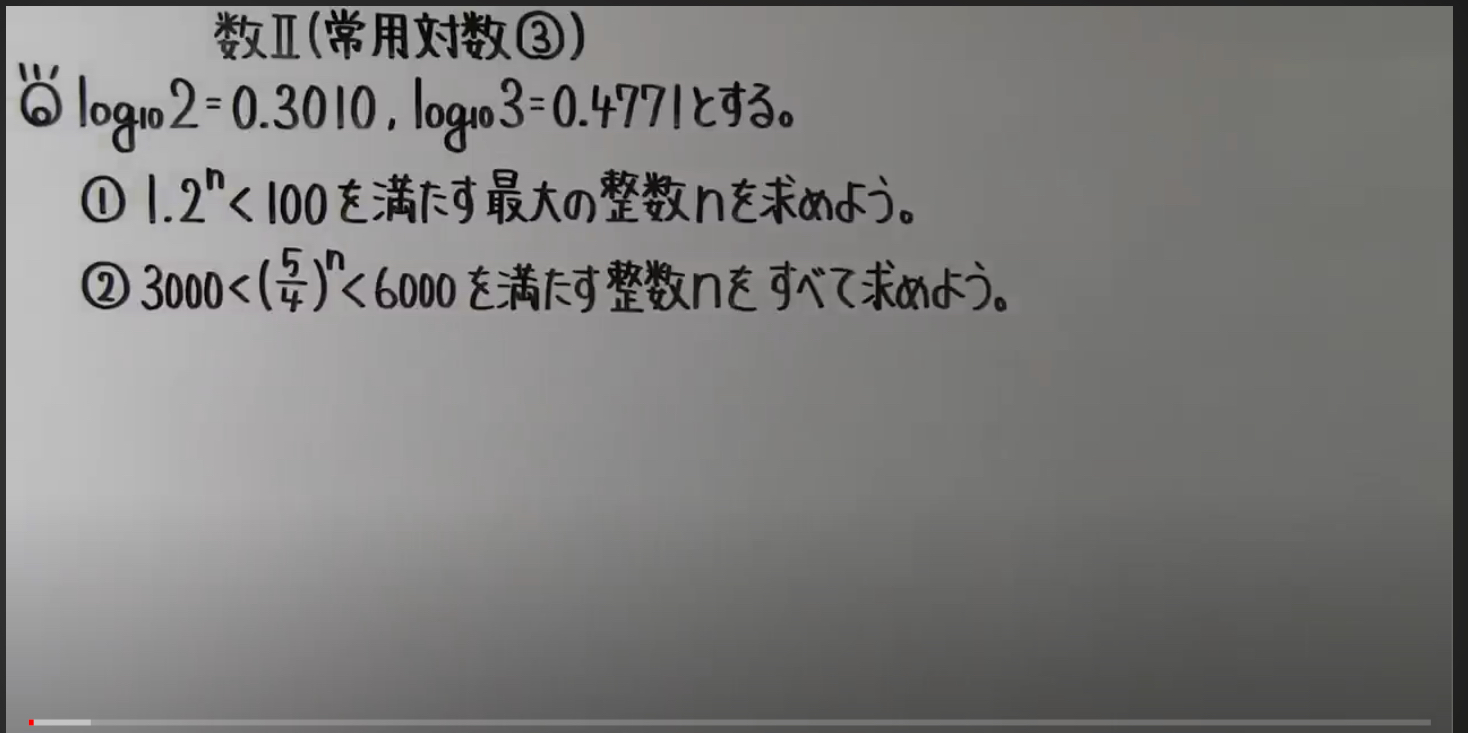 数Ⅱ(常用対数③)
log₁₀2=0.3010, log₁₀3=0.4771とする。
① 1.2ⁿ<100を満たす最大の整数nを求めよう。
② 3000<(5/4)ⁿ<6000を満たす整数nをすべて求めよう。